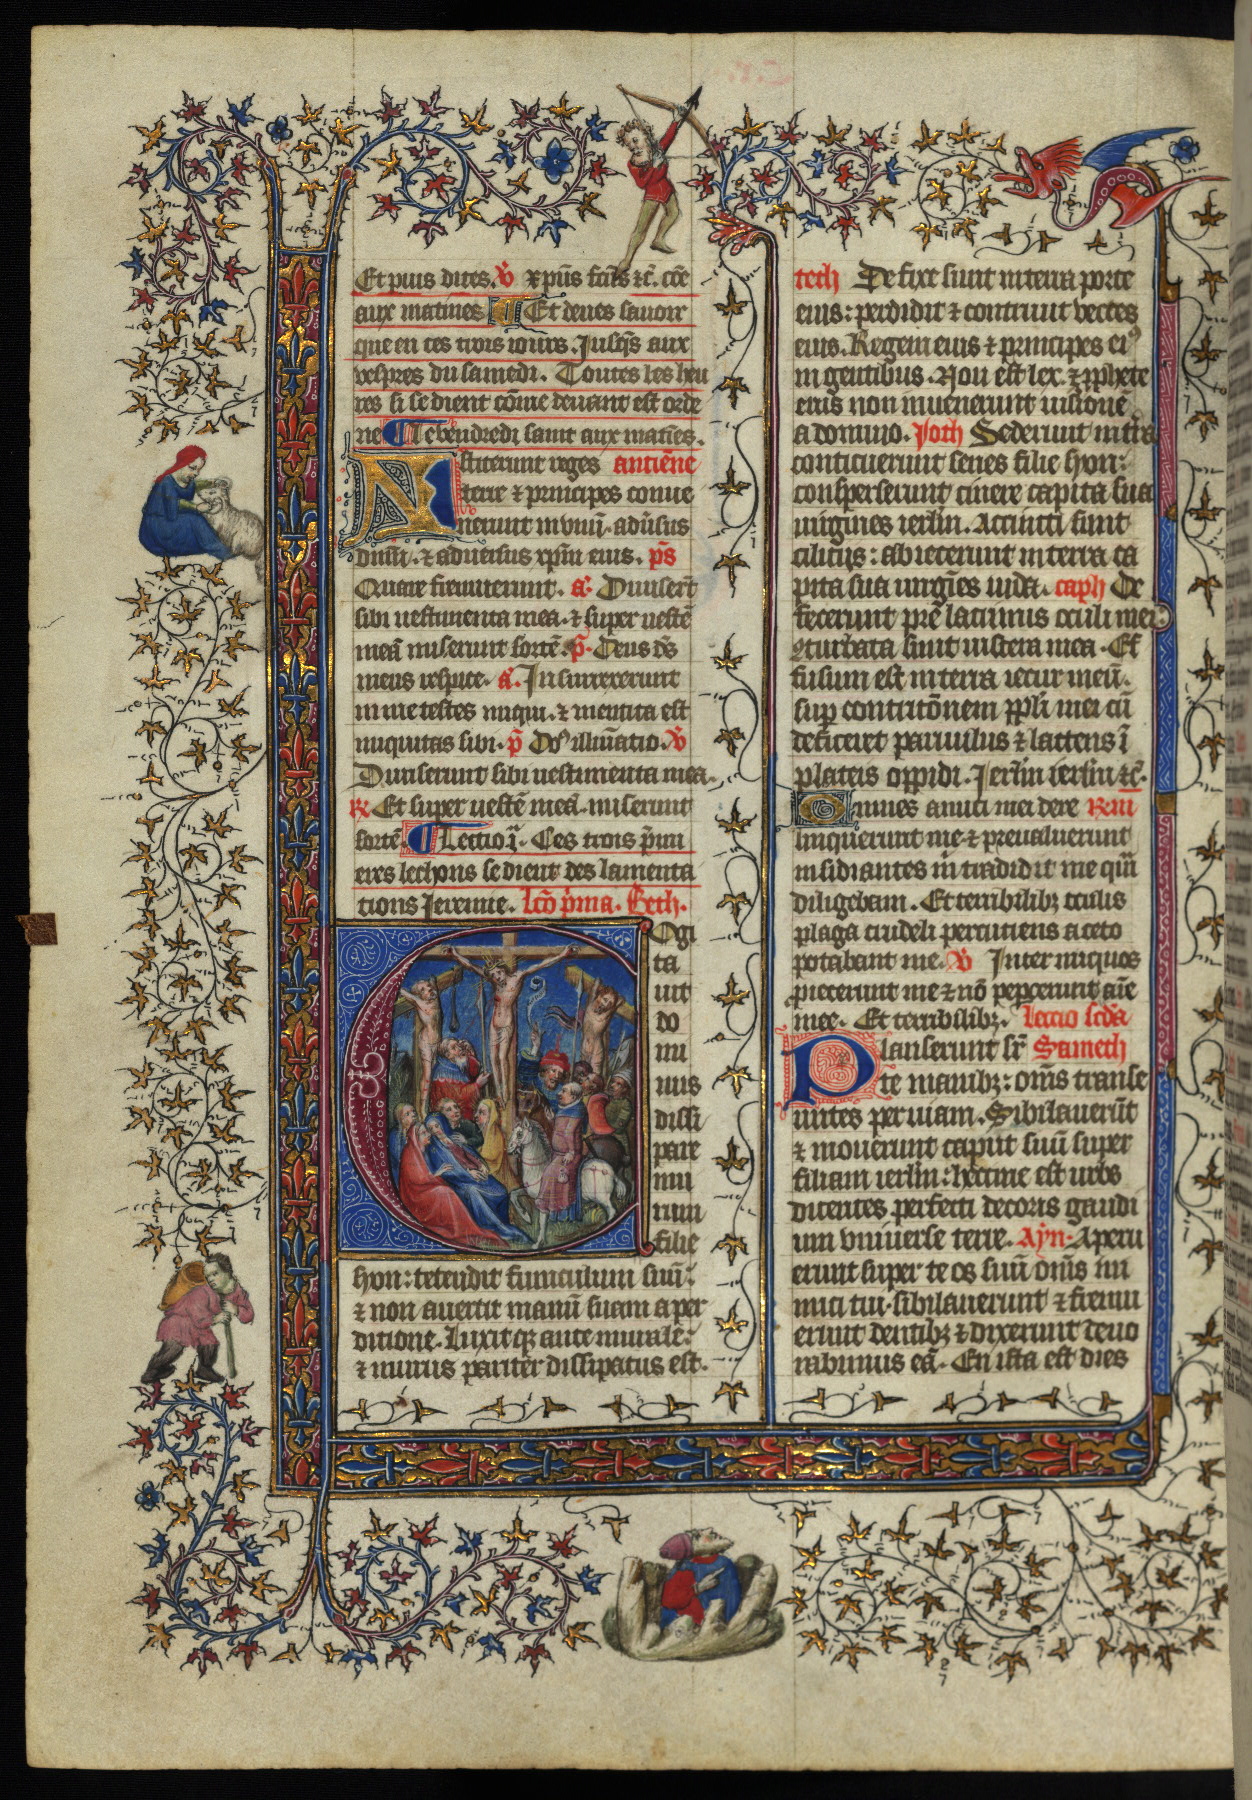 Et puis dites. v̄ xp̄us fc̄us ⁊c̄. cōe
aux matines ¶ Et deues sauoir
que en ces trois iours. Jusq̄s aux
vespres du samedi. Toutes les heu
res si se dient cōme deuant est orde
ne ¶ Le vendredi saint aux matīes.
Astiterunt reges antiēne
terre ⁊ principes conue
nerunt in vnū. aduersus
dn̄m. ⁊ aduersus xp̄m eius. p̄s
Quare fremuerunt. a᷎. Diuiserūt
sibi uestimenta mea. ⁊ super uestē
meā miserunt sortē. p̄. Deus d̄s
meus respice. a᷎. Insurrexerunt
in me testes iniqui. ⁊ mentita est
iniquitas sibi. p̄ Dn̄s illūatio. v̄
Diuiserunt sibi uestimenta mea.
℞. Et super uestē meā. miserunt
sortē ¶ Lectio .i. Ces trois p̄mi
eres lechons se dient des lamenta
tions Jeremie. Lc̄o p̄ma. Heth.
Cogi
ta
uit
do
mi
nus
dissi
pare
mu
rum
filie
syon: tetendit funiculum suū:
⁊ non auertit manū suam a per
ditione. Luxitqꝫ ante murale:
⁊ murus pariter dissipatus est.
teth De fixe sunt in terra porte
eius: perdidit ⁊ contriuit vectes
eius. Regem eius ⁊ principes ei᷒
in gentibus. Non est lex. ⁊ ꝓphete
eius non inuenerunt uisionē
a domino. Joth Sederunt in tr̄a
conticuerunt senes filie syon:
consperserunt cinere capita sua
uirgines ierlm̄. Accincti sunt
ciliciis: abiecerunt in terra ca
pita sua uirgīes iuda. caph De
fecerunt pre̅ lacrimis oculi mei:
ꝯturbata sunt uiscera mea. Ef
fusum est in terra iecur meū.
sup̄ contritōnem ppl̄i mei cū
deficeret paruulus ⁊ lactens ī
plateis oppidi. Jerlm̄ ierlm̄ ⁊c̄.
Omnes amici mei dere Rm̄
linquerunt me ⁊ preualuerunt
insidiantes m̄ tradidit me quē
diligebam. Et terribilibꝫ oculis
plaga crudeli percutiens aceto
potabant me. v̄ Inter iniquos
proiecerunt me ⁊ nō pepercerunt aīe
mee. Et terribilibꝫ. Leccio scd̄a
Planserunt sr̄ Samech
te manibꝫ: om̄s transe
untes per uiam. Sibilauerūt
⁊ mouerunt caput suū super
filiam ierlm̄: heccine est urbs
dicentes perfecti decoris gaudi
um vniuerse terre. Ayn. Aperu
erunt super te os suū om̄s ini
mici tui. sibilauerunt ⁊ fremu
erunt dentibꝫ ⁊ dixerunt deuo
rabimus eā. En ista est dies